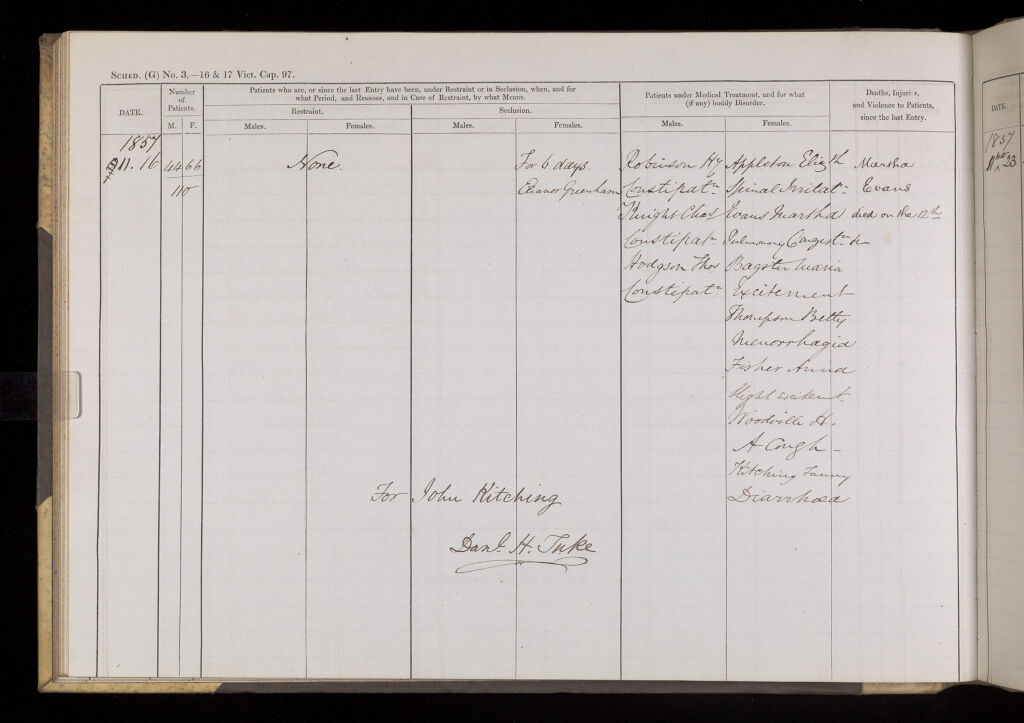 SCHED. (G) No. 3.—16 & 17 Vict. Cap. 97.
DATE.
Number of Patients.
M. F.
Patients who are, or since the last Entry have been, under Restraint or in Seclusion, when, and for
what Period, and Reasons, and in Case of Restraint, by what Means.
Restraint.
Males. Females.
Seclusion.
Males. Females.
Patients under Medical Treatment, and for what
(if any) bodily Disorder.
Males. Females.
Deaths, Injuries,
and Violence to Patients,
since the last Entry.
1857
11. 16
44 66
110
None.
For 6 days
Eleanor Greenham
Robinson Hy
Constipatn
Knight Chas
Constipatn
Hodgson Thos
Constipatn
Appleton Elizth
Spinal Irritatn
Evans Martha
Pulmonary Congestn &c
Bagster Maria
Excitement
Thompson Betty
Menorrhagia
Fisher Anna
Slight excitent
Woodville H.
A Cough
Kitching Fanny
Diarrhoea
Martha
Evans
died on the 12th
For John Kitching
Danl. H. Tuke
DATE.
1857